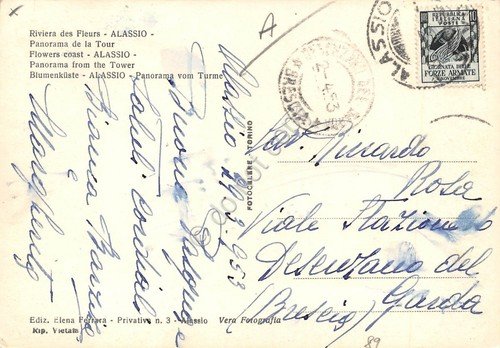 Riviera des Fleurs - ALASSIO -
Panorama de la Tour
Flowers coast - ALASSIO -
Panorama from the Tower
Blumenküste - ALASSIO - Panorama vom Turme
A
Alassio 29.3.953
Buona Pasqua e
saluti cordiali
Bianca Maria
e
Margherita
FOTOCELERE - TORINO
ALASSIO
REPUBBLICA
ITALIANA
POSTE
10
GIORNATA DELLE
FORZE ARMATE
4 NOVEMBRE
Riccardo
Rosa
Viale Stazione
Desenzano del
Garda
(Brescia)
Ediz. Elena Ferrara - Privativa n. 3 - Alassio
Vera Fotografia
Rip. Vietata
89